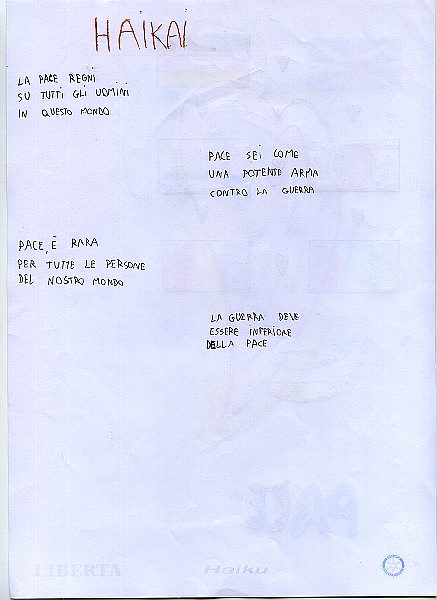 HAIKAI
LA PACE REGNI
SU TUTTI GLI UOMINI
IN QUESTO MONDO
PACE SEI COME
UNA POTENTE ARMA
CONTRO LA GUERRA
PACE, È RARA
PER TUTTE LE PERSONE
DEL NOSTRO MONDO
LA GUERRA DEVE
ESSERE INFERIORE
DELLA PACE
PACE
LIBERTÀ
Haiku